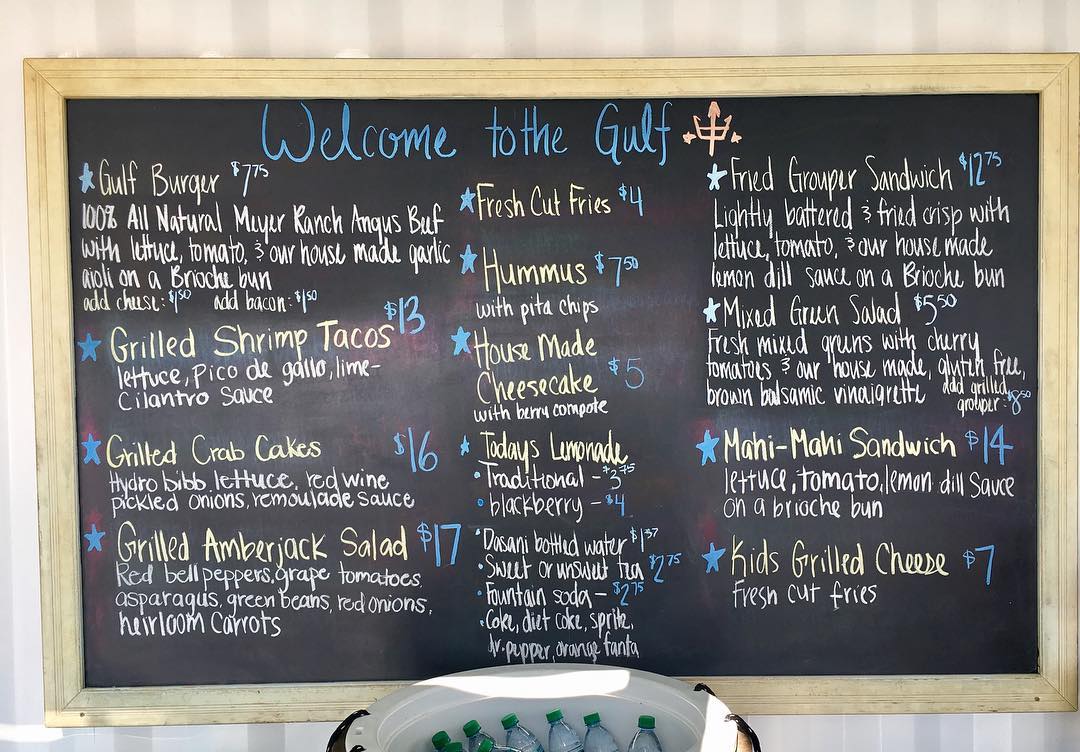 Welcome to the Gulf
Gulf Burger $7.75
100% All Natural Meyer Ranch Angus Beef
with lettuce, tomato, & our house made garlic
aioli on a Brioche bun
add cheese: $1.50 add bacon: $1.50
Grilled Shrimp Tacos $13
lettuce, pico de gallo, lime-
Cilantro Sauce
Grilled Crab Cakes $16
Hydro bibb lettuce, red wine
pickled onions, remoulade sauce
Grilled Amberjack Salad $17
Red bell peppers, grape tomatoes
asparagus, green beans, red onions,
heirloom carrots
Fresh Cut Fries $4
Hummus $7.50
with pita chips
House Made
Cheesecake $5
with berry compote
Todays Lemonade
• Traditional - $3.75
• blackberry - $4
• Dasani bottled water $1.37
• Sweet or unsweet tea $2.75
• Fountain soda - $2.75
• Coke, diet Coke, sprite,
dr. pepper, orange fanta
Fried Grouper Sandwich $12.75
Lightly battered & fried crisp with
lettuce, tomato, & our house made
lemon dill sauce on a Brioche bun
Mixed Green Salad $5.50
Fresh mixed greens with cherry
tomatoes & our house made, gluten free,
brown balsamic vinaigrette add grilled
grouper: $8.50
Mahi-Mahi Sandwich $14
lettuce, tomato, lemon dill Sauce
on a brioche bun
Kids Grilled Cheese $7
Fresh cut fries